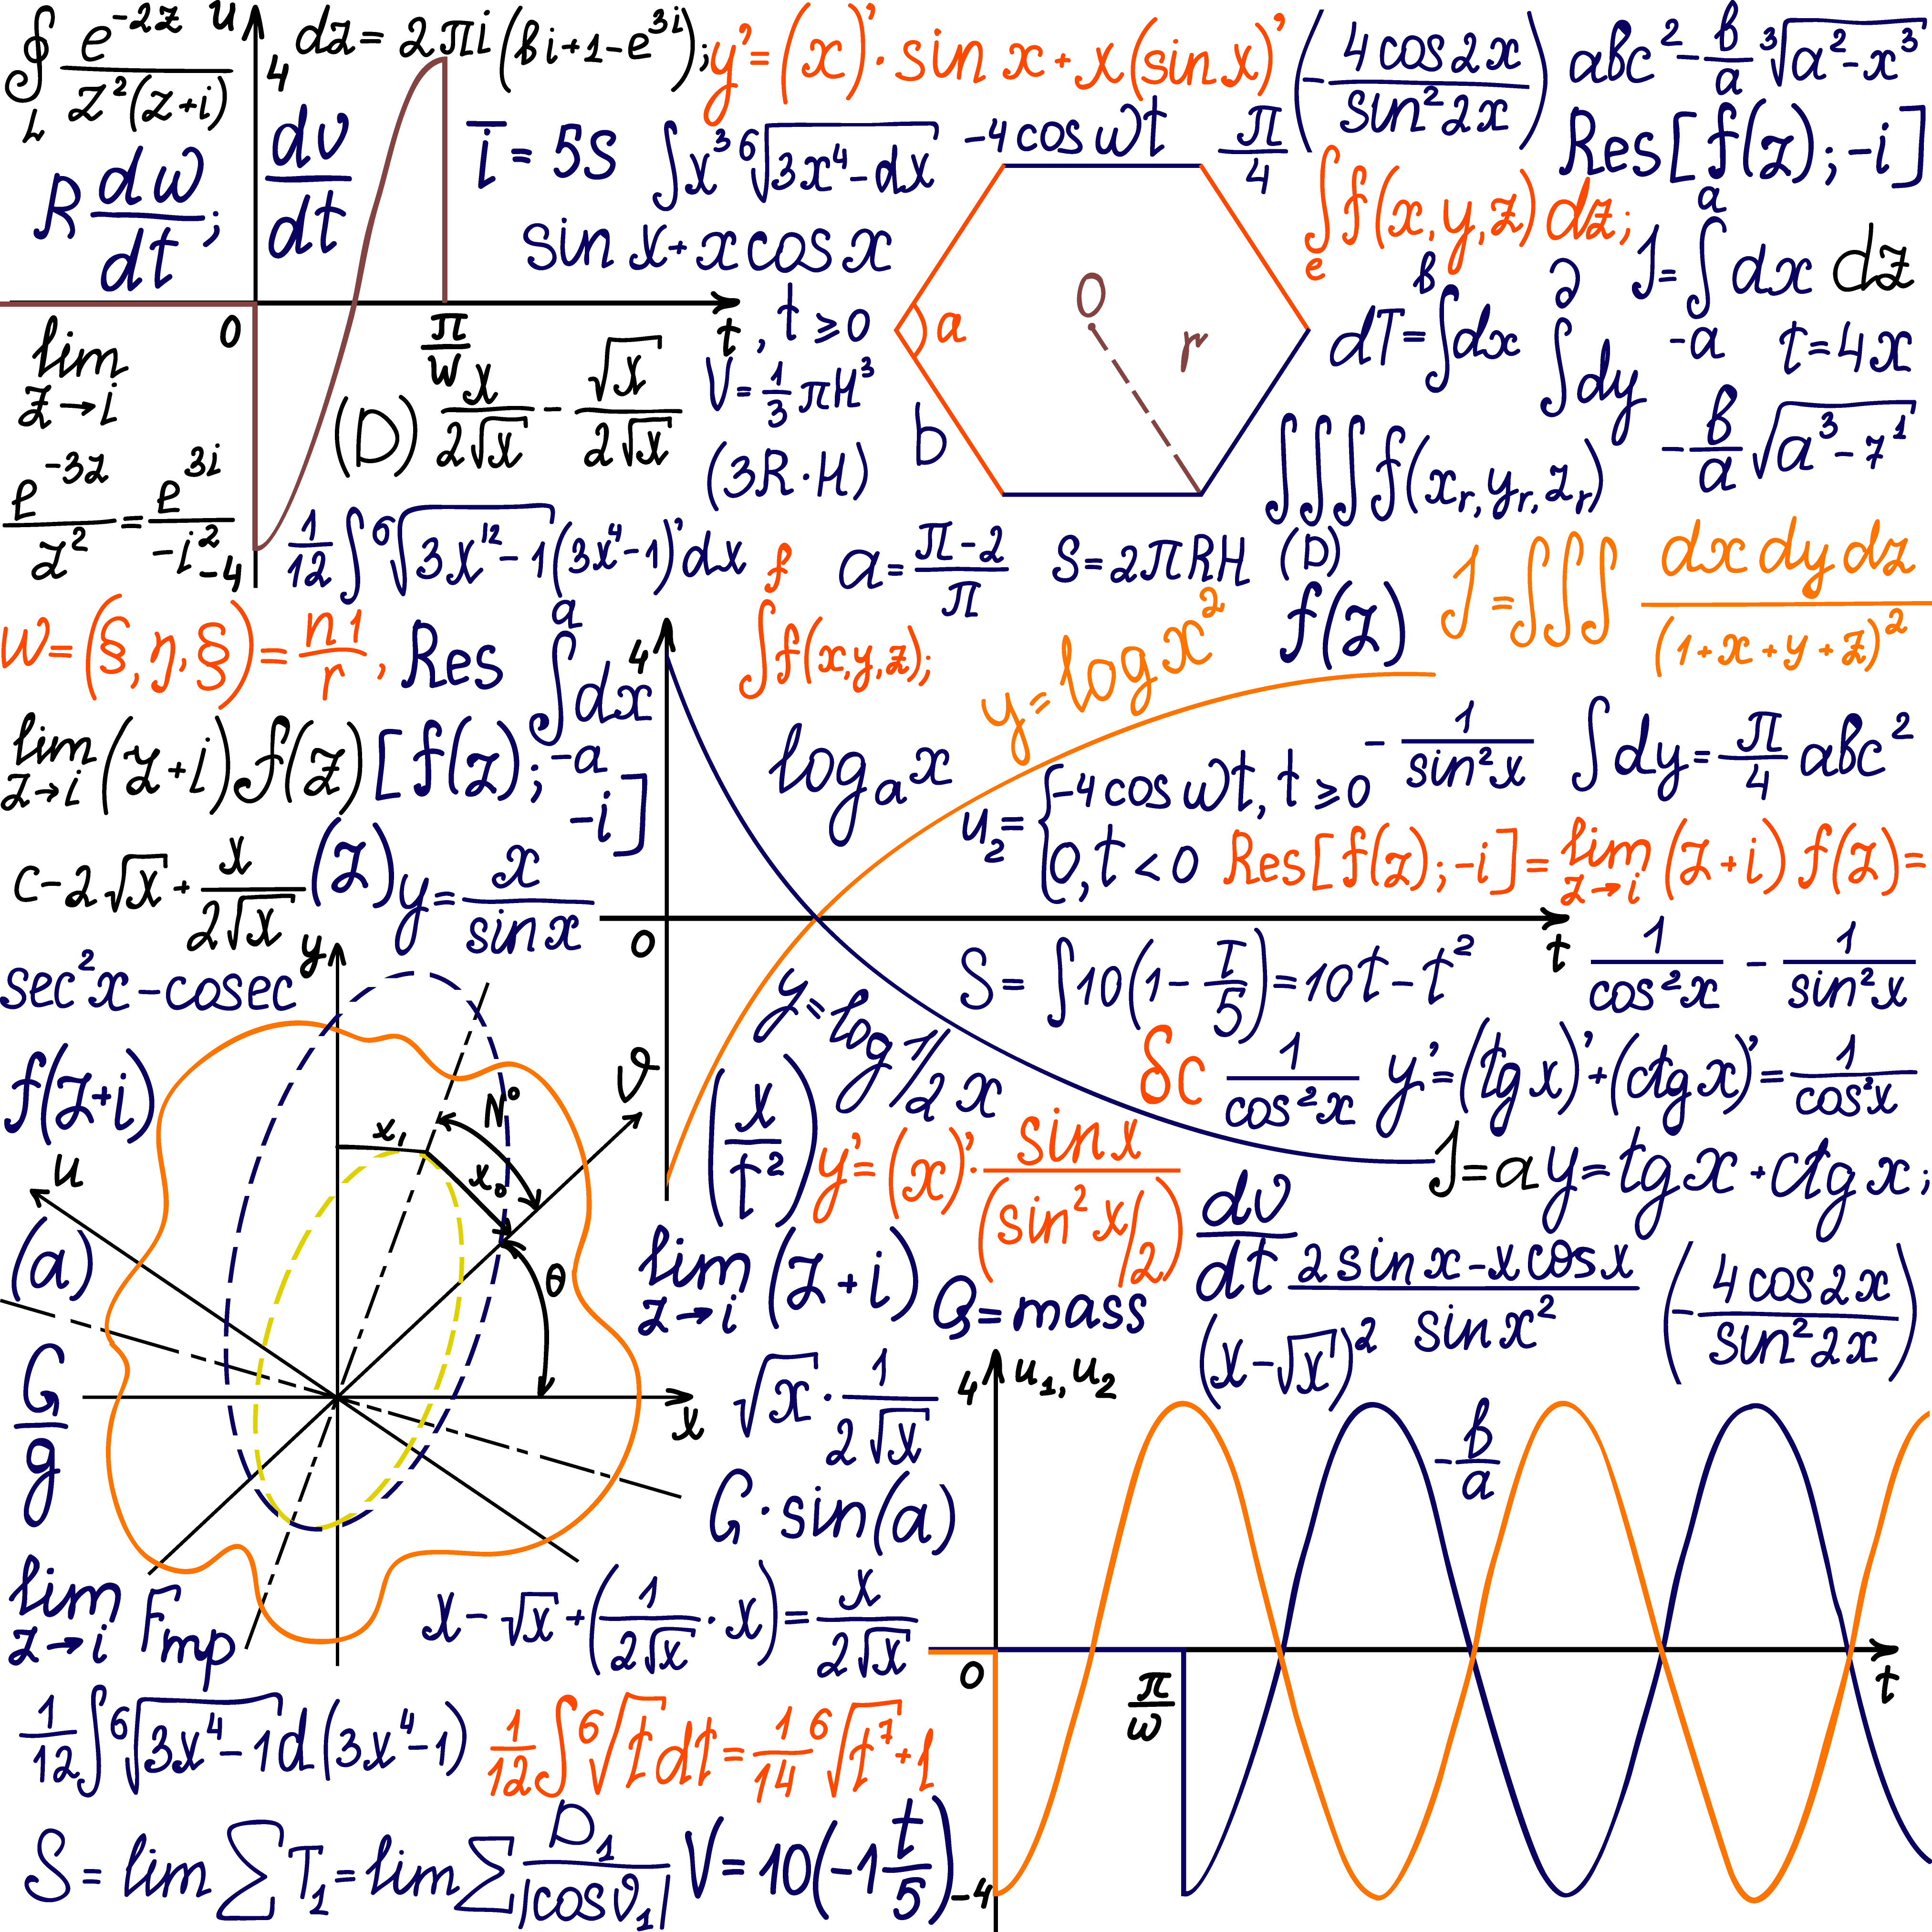 ∮_L e^(-2z)/(z²(z+i)) dz = 2πi(вi+1-e^(3i));
y'=(x)'·sin x+x(sin x)'
(-4cos2x/sin²2x)
abc²-в/a ∛(a²-x³)
u
4
R dw/dt;
dv/dt
t̅ = 5S
∫x³ ⁶√(3x⁴-dx)
-4cos wt
π/4
Res[f(z);-i]
sin x+x cos x
∫_e f(x,y,z)dz;
J=∫^a_-a dx dz
0
π/w
t
, t ≥ 0
a
O
r
dT=∫^в dx
∫^∂ dy
t=4x
lim z→i
(D) x/(2√x) - √x/(2√x)
V=1/3 πH³
b
(3R·H)
∫∫∫f(x_r,y_r,z_r)
-в/a √(a³-7¹)
e^(-3z)/z² = e^(3i)/-i²
-4
1/12 ∫⁶√(3x¹²-1)(3x⁴-1)'dx
f
a=(π-2)/π
S=2πRH
(D)
J=∫∫∫ dx dy dz/(1+x+y+z)²
W=(§,η,§)=n1/r,
Res
∫^a_-a dx
4
∫f(x,y,z);
y=log x²
f(z)
lim z→i (z+i)f(z)
[f(z);-i]
log_a x
u₂={-4cos wt, t ≥ 0
0, t < 0
-1/sin²x
∫dy=π/4 abc²
c-2√x+x/(2√x)
(z)
y=x/sin x
Res[f(z);-i]=lim z→i (z+i)f(z)=
0
t
sec²x-cosec
y
S=∫10(1-t/5)=10t-t²
1/cos²x - 1/sin²x
f(z+i)
y=log 1/2 x
δc
1/cos²x
y'=(tg x)'+(ctg x)'=1/cos²x
ϑ
N°
x₁
x₀
(x/t²)
y'=(x)'·sin x/(sin² x/2)
J=a
y=tg x+ctg x;
u
(a)
θ
lim z→i (z+i)
G=mass
dv/dt
2sin x-x cos x/sin x²
(-4cos2x/sin²2x)
G/g
x
√x·1/(2√x)
4
u₁, u₂
(x-√x)²
-в/a
G·sin(a)
lim z→i
F_mp
x-√x+(1/(2√x)·x)=x/(2√x)
0
π/w
t
1/12 ∫⁶√(3x⁴-1)d(3x⁴-1)
1/12 ∫⁶√t dt=1/14 ⁶√t⁷+1
S=lim∑T₁=lim∑D₁/|cosϑ₁|
V=10(-1 t/5)
-4